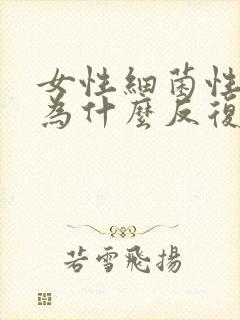 女性細菌性
為什麼反復
若雪飛揚